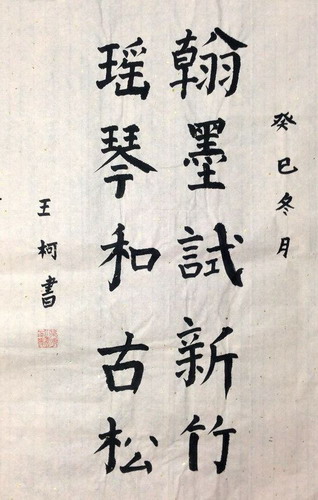 癸巳冬月
翰墨試新竹
瑶琴和古松
王柯書